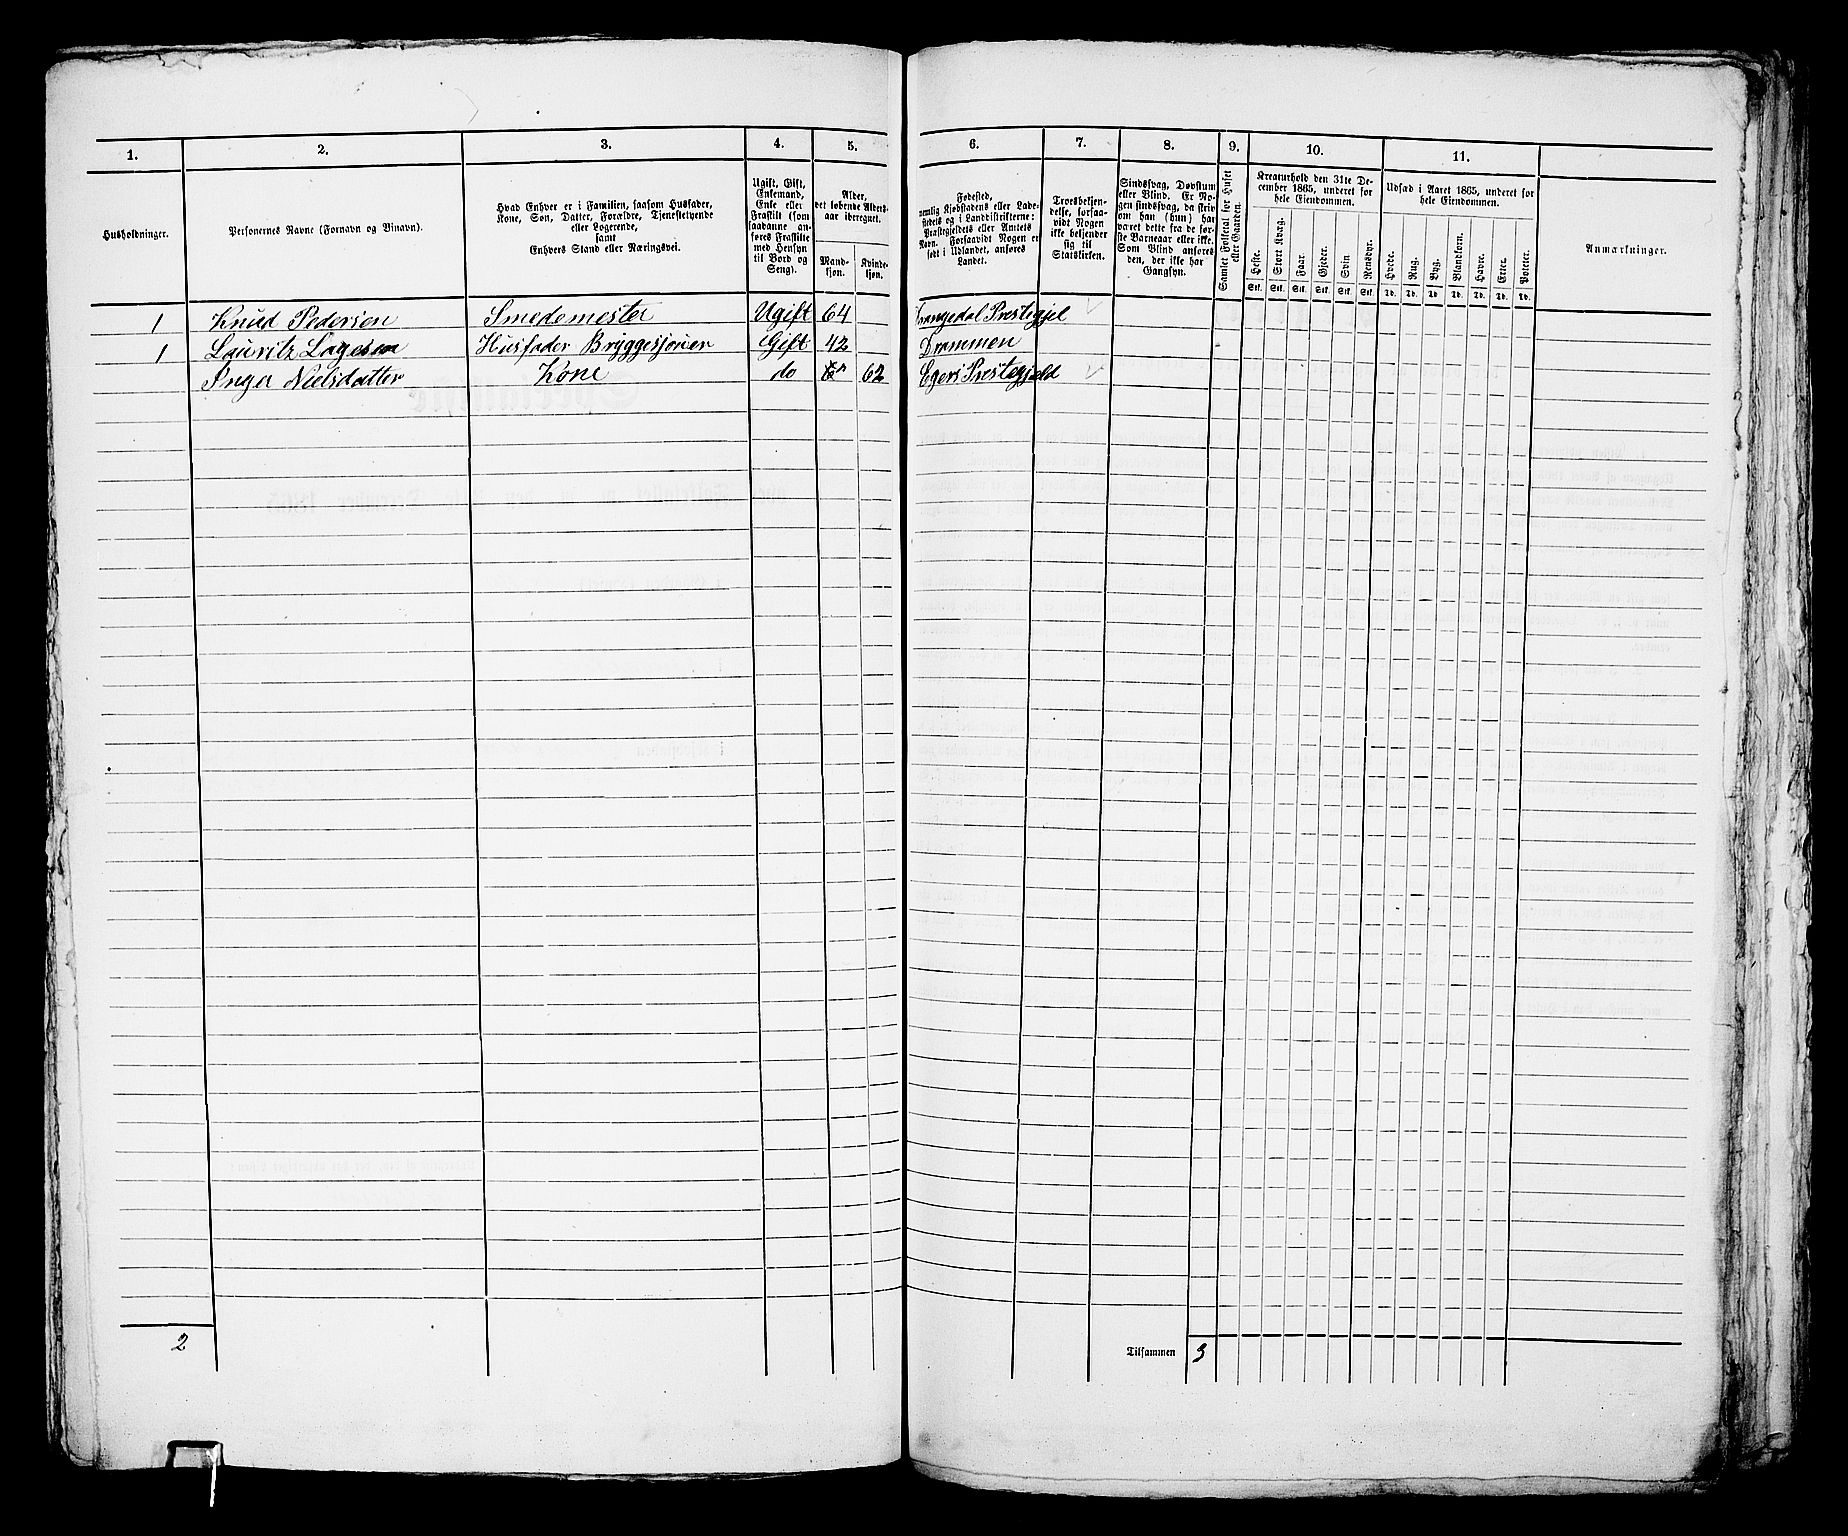 1. 2. 3. 4. 5. 6. 7. 8. 9. 10. 11.
Husholdninger.
Personernes Navne (Fornavn og Binavn).
Hvad Enhver er i Familien, saasom Husfader,
Kone, Søn, Datter, Forældre, Tjenestetyende
eller Logerende,
samt
Enhvers Stand eller Næringsvei.
Ugift, Gift,
Enkemand,
Enke eller
Fraskilt (som
saadanne an-
føres Fraskilte
med Hensyn
til Bord og
Seng).
Alder,
det løbende Alders-
aar iberegnet.
Mand-
kjøn.
Kvinde-
kjøn.
Fødested,
nemlig Kjøbstadens eller Lade-
stedets og i Landdistrikterne:
Præstegjeldets eller Amtets
Navn. Forsaavidt Nogen er
født i Udlandet, anføres
Landet.
Troesbekjen-
delse, forsaa-
vidt Nogen
ikke bekjender
sig til
Statskirken.
Sindssvag, Døvstum
eller Blind. Er No-
gen sindssvag, da skriv
om han (hun) har
været dette fra de før-
ste Barneaar eller ikke.
Som Blind anføres
den, der ikke har
Gangsyn.
Samlet Folketal for Huset
eller Gaarden.
Kreaturhold den 31te De-
cember 1865, underet for
hele Eiendommen.
Heste. Stort Kvæg. Faar. Gjeder. Svin. Rensdyr.
Stk. Stk. Stk. Stk. Stk. Stk.
Udsæd i Aaret 1865, underet for
hele Eiendommen.
Hvede. Rug. Byg. Blandkorn. Havre. Erter. Poteter.
Td. Td. Td. Td. Td. Td. Td.
Anmærkninger.
1 Knud Pedersen Smedemester Ugift 64 Drangedal Prestegjel
1 Lauritz Lagesen Husfader Bryggesjouer Gift 42 Drammen
Inger Nielsdatter Kone do 62 Egers Prestegjeld
2 Tilsammen 3